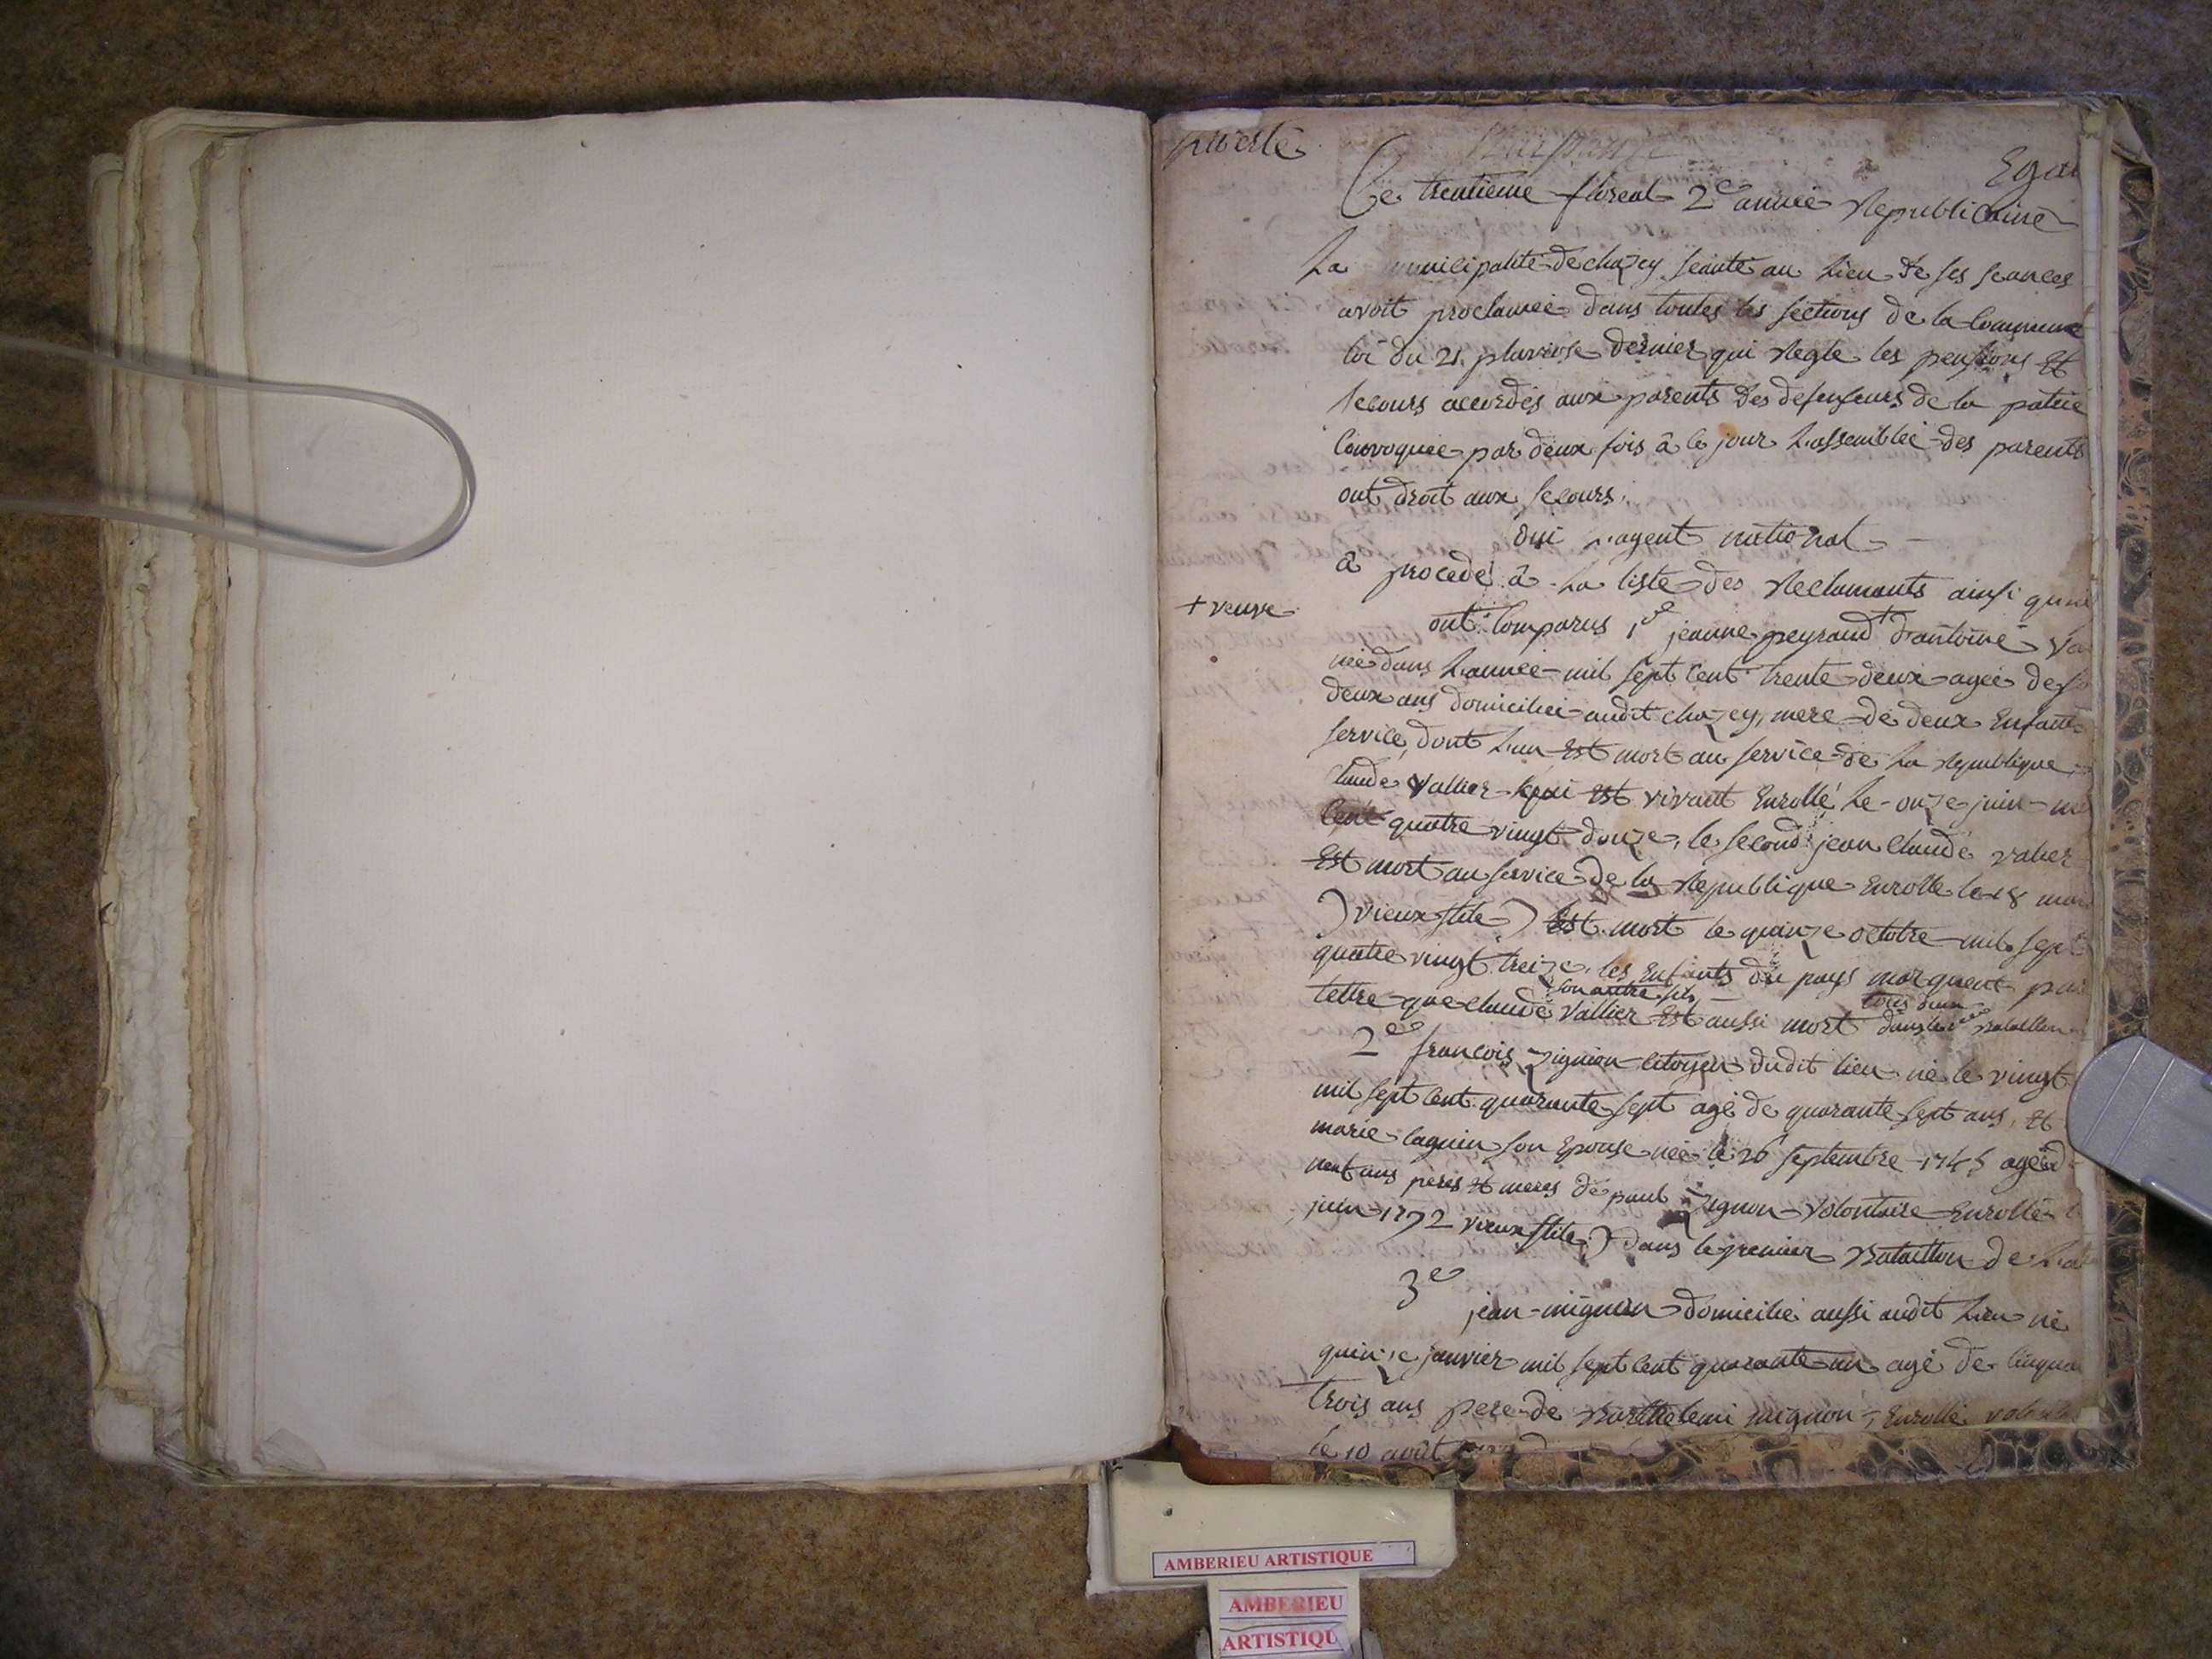 Ega
Ce trentieme floreal 2e année Republicaine
La municipalité de chazey seante au lieu de ses seances
avoit proclamée dans toutes les sections de la Commune
loi du 21 pluviose dernier qui Regle les pensions Et
secours accordés aux parents des defenseurs de la patrie
Convoquée par deux fois â ce jour L'assemblée des parents
ont droit aux secours.
oui L'agent national
â procedé â La liste des Reclamants ainsi
+ veuve
ont Comparus 1e jeanne peyraud + d'antoine
née dans L'année mil sept Cent trente deux agée de
deux ans domiciliée audit chazey, mere de deux Enfants
service, dont L'un Est mort au service de La Republique
Claude Vallier qui Est vivant Enrollé Le onze juin
Cent quatre vingt douze, le second jean Claude valier
Est mort au service de la Republique Enrolle le 18
)vieux stile) Est mort le quinze octobre mil sept
quatre vingt treize. les Enfants du pays marquent
son autre fils
tous deux
lettre que claude Vallier Est aussi mort dans le Bataillon
2e françois zignon citoyen dudit lieu né le vingt
mil sept Cent quarante sept agé de quarante sept ans, Et
marie laguin son Epouse née le 26 septembre 1745 agée
neuf ans peres Et meres de paul zignon Volontaire Enrollé
juin 1792 vieux stile) dans le premier Bataillon de
3e
jean mignon domicilié aussi audit Lieu né
quinze janvier mil sept Cent quarante un agé de
trois ans pere de Barthelemi mignon, Enrollé
le 10 août
AMBERIEU ARTISTIQUE
AMBERIEU
ARTISTIQU